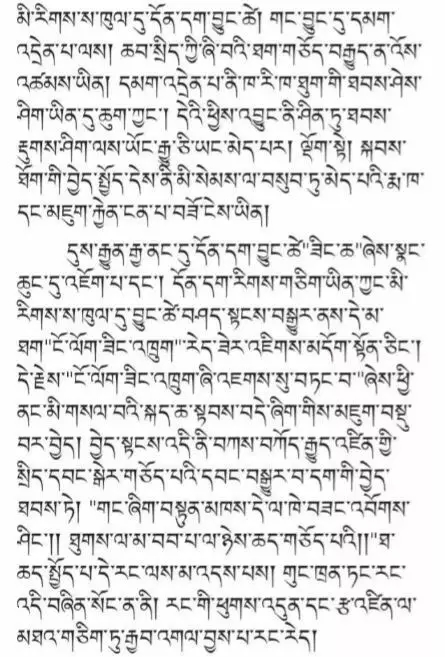 མི་རིགས་ས་ཁུལ་དུ་དོན་དག་བྱུང་ཚེ། གང་བྱུང་དུ་དམག་
འདྲེན་པ་ལས། ཆབ་སྲིད་ཀྱི་ཞི་བའི་ཐག་གཅོད་བརྒྱུད་ན་འོས་
འཚམས་ཡིན། དམག་འདྲེན་པ་ནི་ཁ་རི་ཁ་ཐུག་གི་ཐབས་ཤེས་
ཤིག་ཡིན་དུ་ཆུག་ཀྱང་། དེའི་ཕྱིས་འབྱུང་ནི་ཤིན་ཏུ་ཐབས་
རྡུགས་ཤིག་ལས་ཡོང་རྒྱུ་ཅི་ཡང་མེད་པར། ལྡོག་སྟེ། སྐབས་
ཐོག་གི་བྱེད་སྤྱོད་དེས་ནི་མི་སེམས་ལ་བསུབ་ཏུ་མེད་པའི་རྨ་ཁ་
དང་མཇུག་རྐྱེན་ངན་པ་བཟོ་ངེས་ཡིན།
དུས་རྒྱུན་རྒྱ་ནང་དུ་དོན་དག་བྱུང་ཚེ"ཟིང་ཆ"ཞེས་སྣང་
ཆུང་དུ་འཇོག་པ་དང་། དོན་དག་རིགས་གཅིག་ཡིན་ཀྱང་མི་
རིགས་ས་ཁུལ་དུ་བྱུང་ཚེ་བཤད་སྟངས་བསྒྱུར་ནས་དེ་མ་
ཐག"ངོ་ལོག་ཟིང་འཁྲུག"རེད་ཟེར་འཇིགས་མདོག་སྟོན་ཅིང་།
དེ་རྗེས་"ངོ་ལོག་ཟིང་འཁྲུག་ཞི་འཇགས་སུ་བཏང་བ"ཞེས་ཕྱི་
ནང་མི་གསལ་བའི་སྐད་ཆ་སྟབས་བདེ་ཞིག་གིས་མཇུག་བསྡུ་
བར་བྱེད། བྱེད་སྟངས་འདི་ནི་བཀས་བཀོད་རྒྱུད་འཛིན་གྱི་
སྲིད་དབང་སྒེར་གཅོད་པའི་དབང་བསྒྱུར་བ་དག་གི་བྱེད་
ཐབས་ཏེ། "གང་ཞིག་བསྟུན་མཁས་དེ་ལ་ཁེ་བཟང་འབོགས་
ཤིང་།། ཐུགས་ལ་མ་བབ་པ་ལ་ཉེས་ཆད་གཅོད་པའི།།"ཐ་
ཆད་སྤྱོད་པ་དེ་རང་ལས་མ་འདས་པས། གུང་ཁྲན་ཏང་རང་
འདི་བཞིན་སོང་ན་ནི། རང་གི་ཕུགས་འདུན་དང་རྩ་འཛིན་ལ་
མཐའ་གཅིག་ཏུ་རྒྱབ་འགལ་བྱས་པ་རང་རེད།